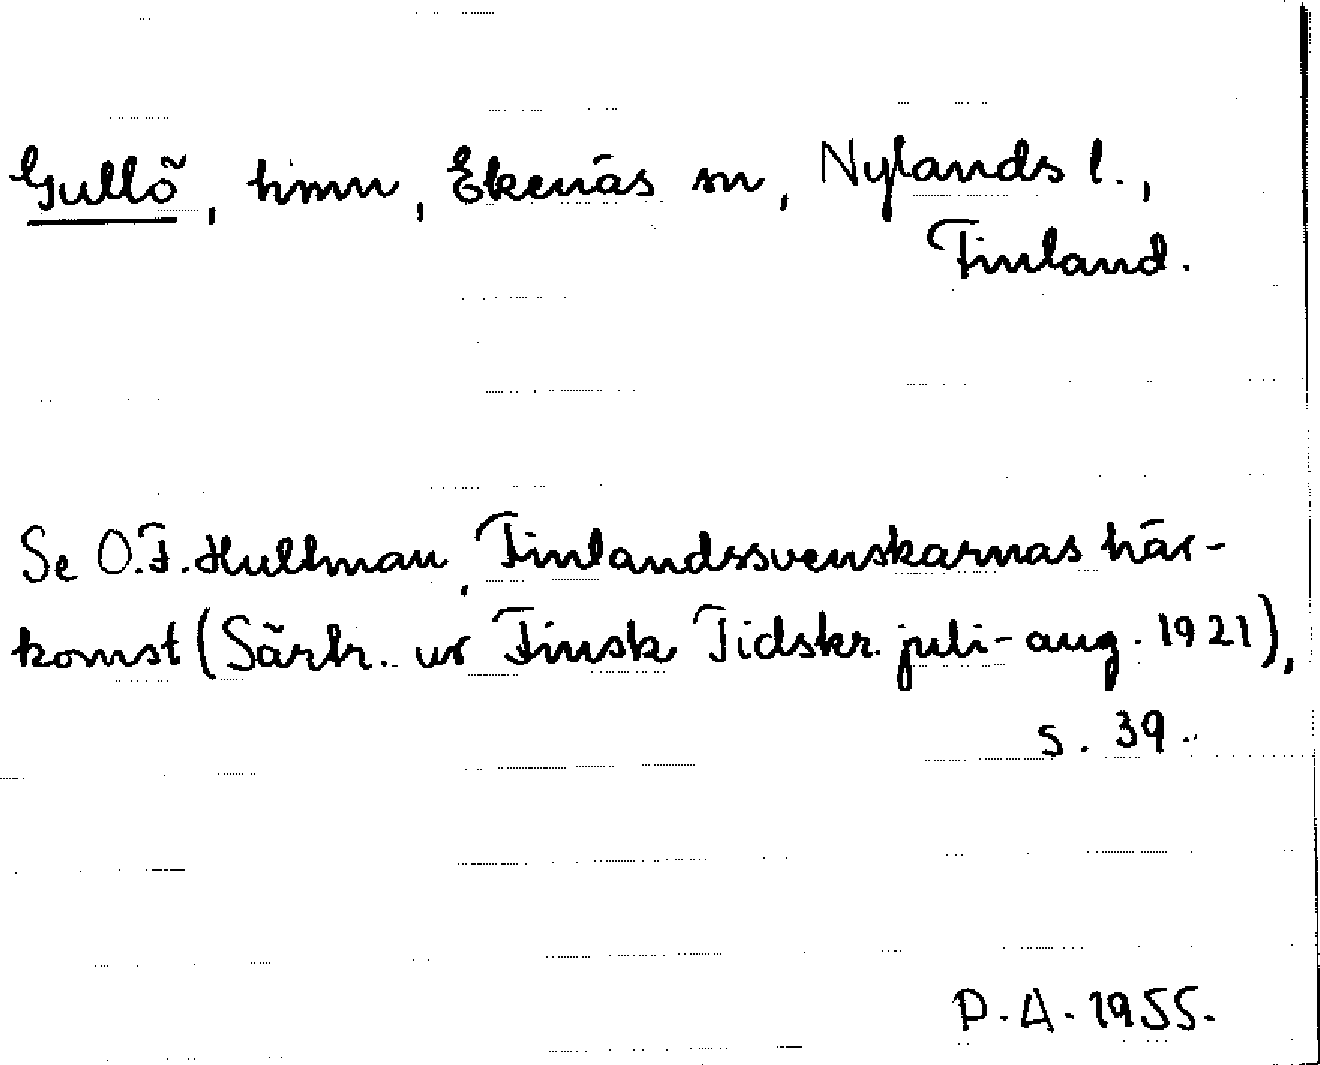 Gullö, hmn, Ekenäs sn, Nylands l.,
Finland.
Se O.F. Hultman, Finlandssvenskarnas här-
komst (Särtr. ur Finsk Tidskr. juli-aug. 1921),
s. 39.
P.A. 1955.